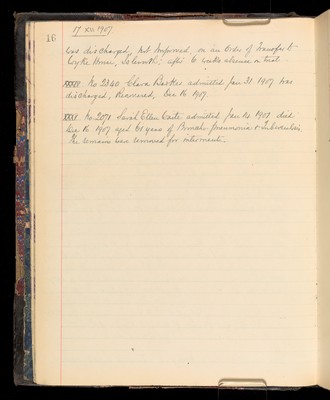 16
17 XII 1907
was discharged, not Improved, on an Order of Transfer to
Wyke House, Isleworth; after 6 weeks absence on trial.
XXXIV No 2340 Clara Barker admitted Jan 31 1907 was
discharged, Recovered, Dec 16 1907.
XXXV No 2071 Sarah Ellen admitted Jan 14 1901 died
Dec 16 1907 aged 61 years of Broncho-pneumonia & Tuberculosis.
The remains were removed for interment.